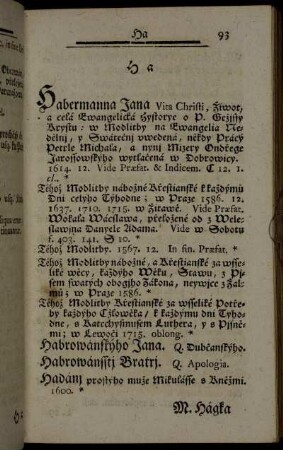 Ha 93
H a
Habermanna Jana Vita Christi, Žiwot,
a celá Ewangelická Hystorye o P. Gezjssy
Krystu: w Modlitby na Ewangelia Ne-
dělnj, y Swátečnj vwedená, někdy Prácý
Petrle Michala, a nynj Mizery Ondřege
Jarossowskýho wytlačená w Dobrowicy.
1614. 12. Vide Præfat. & Indicem. C 12. 1.
Téhož Modlitby nábožné Křestianské k každýmu
Dni celýho Tyhodne; w Praze 1586. 12.
1637. 1710. 1715. w Žitawě. Vide Præfat.
Wokala Wácslawa, přeložené od z Wele-
slawjna Danyele Adama. Vide w Sobotu
f. 403. 141. S 10. *
Téhož Modlitby. 1567. 12. In fin. Præfat. *
Téhož Modlitby nábožné, a Křestianské za wsse-
liké wěcy, každýho Wěku, Stawu, z Pj-
sem swatých obogjho Zákona, neywjce z Žal-
mů; w Praze 1586. *
Téhož Modlitby Křestianské za wsselité Potře-
by každýho Człowěka / k každýmu dni Tyho-
dne, s Katechysmusem Luthera, y s Pjsně-
mi; w Lewoči 1715. oblong. *
Habrowanskýho Jana. Q. Dubčanskýho.
Habrowánsstj Bratrj. Q. Apologia.
Hadánj prostýho muže Mikulásse s Kněžmi.
1600. *
M. Hágka